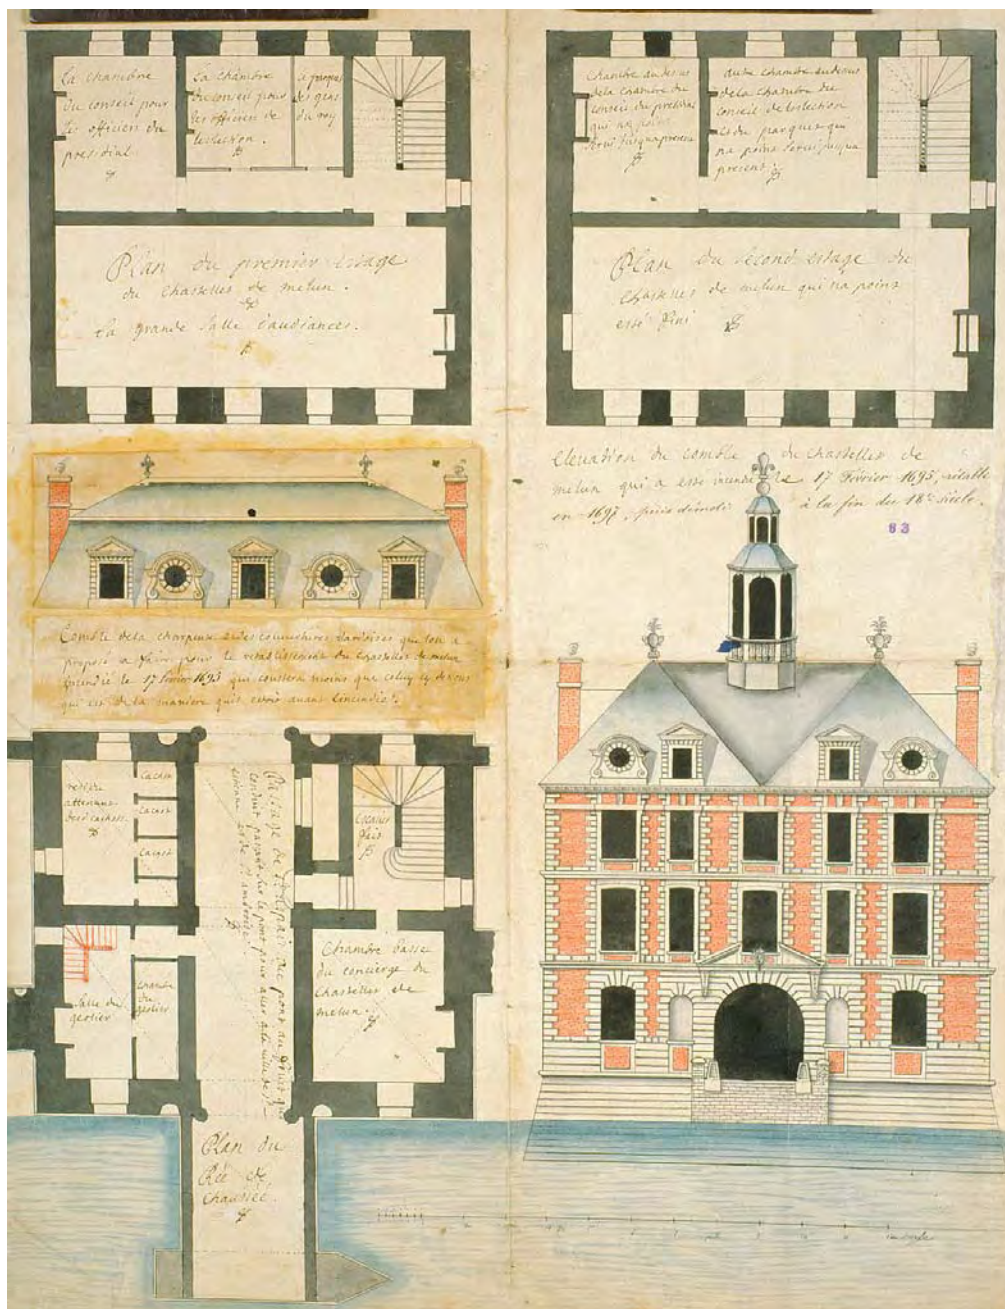 la chambre
du conseil pour
les officiers du
presidial.
La chambre
du conseil pour
les officiers de
lellection.
des gens
du roy
Plan du premier Estage
du Chastelles de melun.
la grande Salle d'audiances.
chambre audesus
dela chambre du
conseil du presidial
qui na point
servi jusqua present
autre chambre audesus
dela chambre du
conseil de lellection
et du parquet qui
na point servi jusqua
present.
Plan du Second estage du
chastelles de melun qui na point
esté fini
elevation du comble du chastelles de
melun qui a esté incendié le 17 Février 1693, rétabli
en 1697, puis démoli à la fin du 18e siècle.
63
Comble de la charpente et des couvertures dardoises que lon a
proposé a faire pour le retablissement du chastelles de melun
incendié le 17 fevrier 1693 qui coustera moins que celuy cy desus
qui est de la maniere quil estoit avant lincendie.
cachots.
Cachot
Cacot
Cacot
Escalier
Salle du
geolier
chambre
du
geolier
Passage de
conduit passant sur le pont pour aller a la ville de
Chambre basse
du concierge du
Chastelles de
melun.
Plan du
Rée de
chaussée.